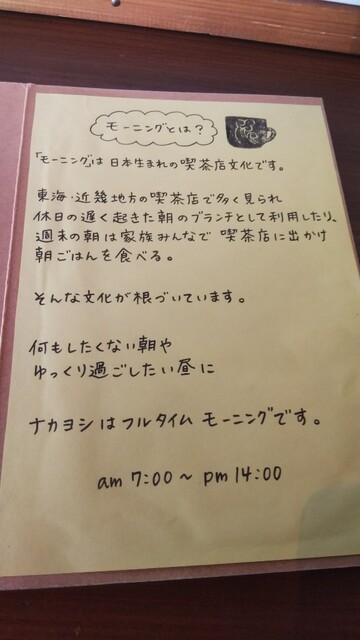 モーニングとは?
「モーニング」は 日本生まれの喫茶店文化です。
東海・近畿地方の喫茶店で多く見られ
休日の遅く起きた朝のブランチとして利用したり、
週末の朝は家族みんなで 喫茶店に出かけ
朝ごはんを食べる。
そんな文化が根づいています。
何もしたくない朝や
ゆっくり過ごしたい昼に
ナカヨシはフルタイム モーニングです。
am 7:00 ~ pm 14:00